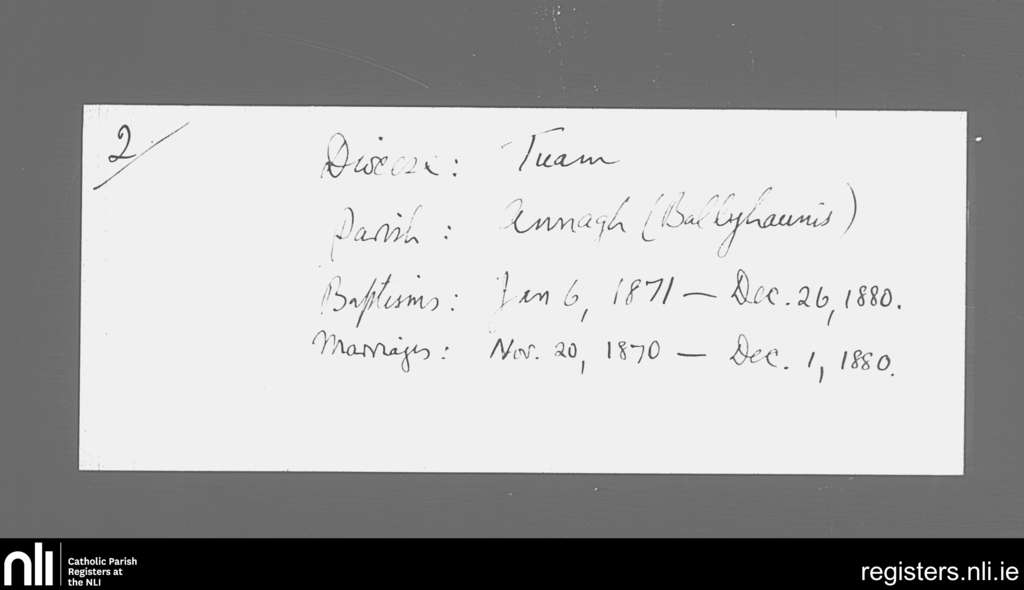 2/
Diocese: Tuam
Parish: Annagh (Ballyhaunis)
Baptisms: Jan 6, 1871 – Dec. 26, 1880.
Marriages: Nov. 20, 1870 – Dec. 1, 1880.
nli
Catholic Parish
Registers at
the NLI
registers.nli.ie